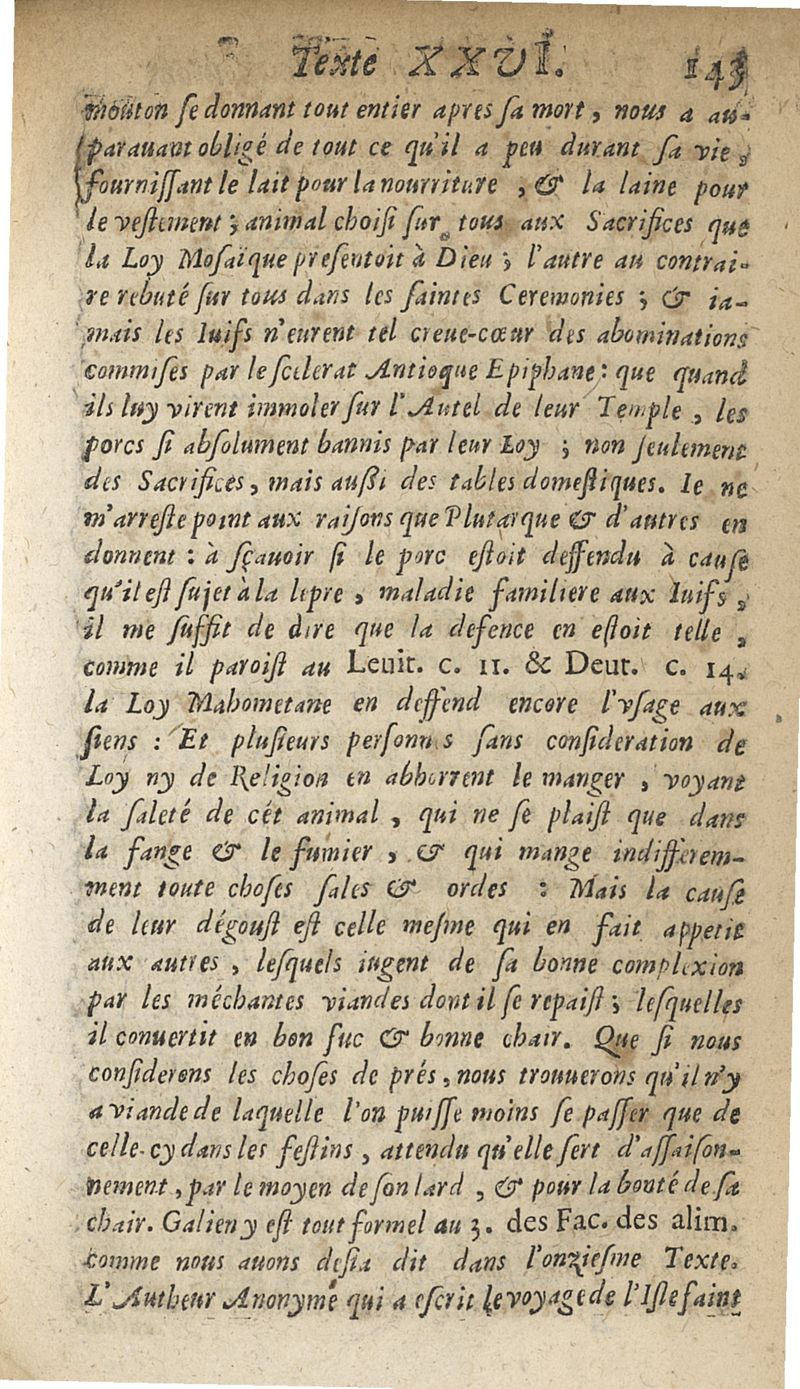 Texte XXVI. 143
mouton ſe donnant tout entier apres ſa mort, nous a au-
parauant obligé de tout ce qu'il a peu durant ſa vie,
fourniſſant le lait pour la nourriture, & la laine pour
le veſtement; animal choiſi ſur tous aux Sacrifices que
la Loy Moſaïque preſentoit à Dieu; l'autre au contrai-
re rebuté ſur tous dans les ſaintes Ceremonies; & ia-
mais les Iuifs n'eurent tel creue-cœur des abominations
commiſes par le ſcelerat Antioque Epiphane: que quand
ils luy virent immoler ſur l'Autel de leur Temple, les
porcs ſi abſolument bannis par leur Loy; non ſeulement
des Sacrifices, mais außi des tables domeſtiques. Ie ne
m'arreſte point aux raiſons que Plutarque & d'autres en
donnent: à ſçauoir ſi le porc eſtoit deffendu à cauſe
qu'il eſt ſujet à la lepre, maladie familiere aux Iuifs,
il me ſuffit de dire que la defence en eſtoit telle,
comme il paroiſt au Leuit. c. 11. & Deut. c. 14.
la Loy Mahometane en deffend encore l'vſage aux
ſiens: Et pluſieurs perſonnes ſans conſideration de
Loy ny de Religion en abhorrent le manger, voyant
la ſaleté de cét animal, qui ne ſe plaiſt que dans
la fange & le fumier, & qui mange indifferem-
ment toute choſes ſales & ordes: Mais la cauſe
de leur dégouſt eſt celle meſme qui en fait appetit
aux autres, leſquels iugent de ſa bonne complexion
par les méchantes viandes dont il ſe repaiſt; leſquelles
il conuertit en bon ſuc & bonne chair. Que ſi nous
conſiderons les choſes de prés, nous trouuerons qu'il n'y
a viande de laquelle l'on puiſſe moins ſe paſſer que de
celle-cy dans les feſtins, attendu qu'elle ſert d'aſſaiſon-
nement, par le moyen de ſon lard, & pour la bonté de ſa
chair. Galien y eſt tout formel au 3. des Fac. des alim.
comme nous auons deſia dit dans l'onzieſme Texte.
L'Autheur Anonyme qui a eſcrit le voyage de l'Iſle ſaint